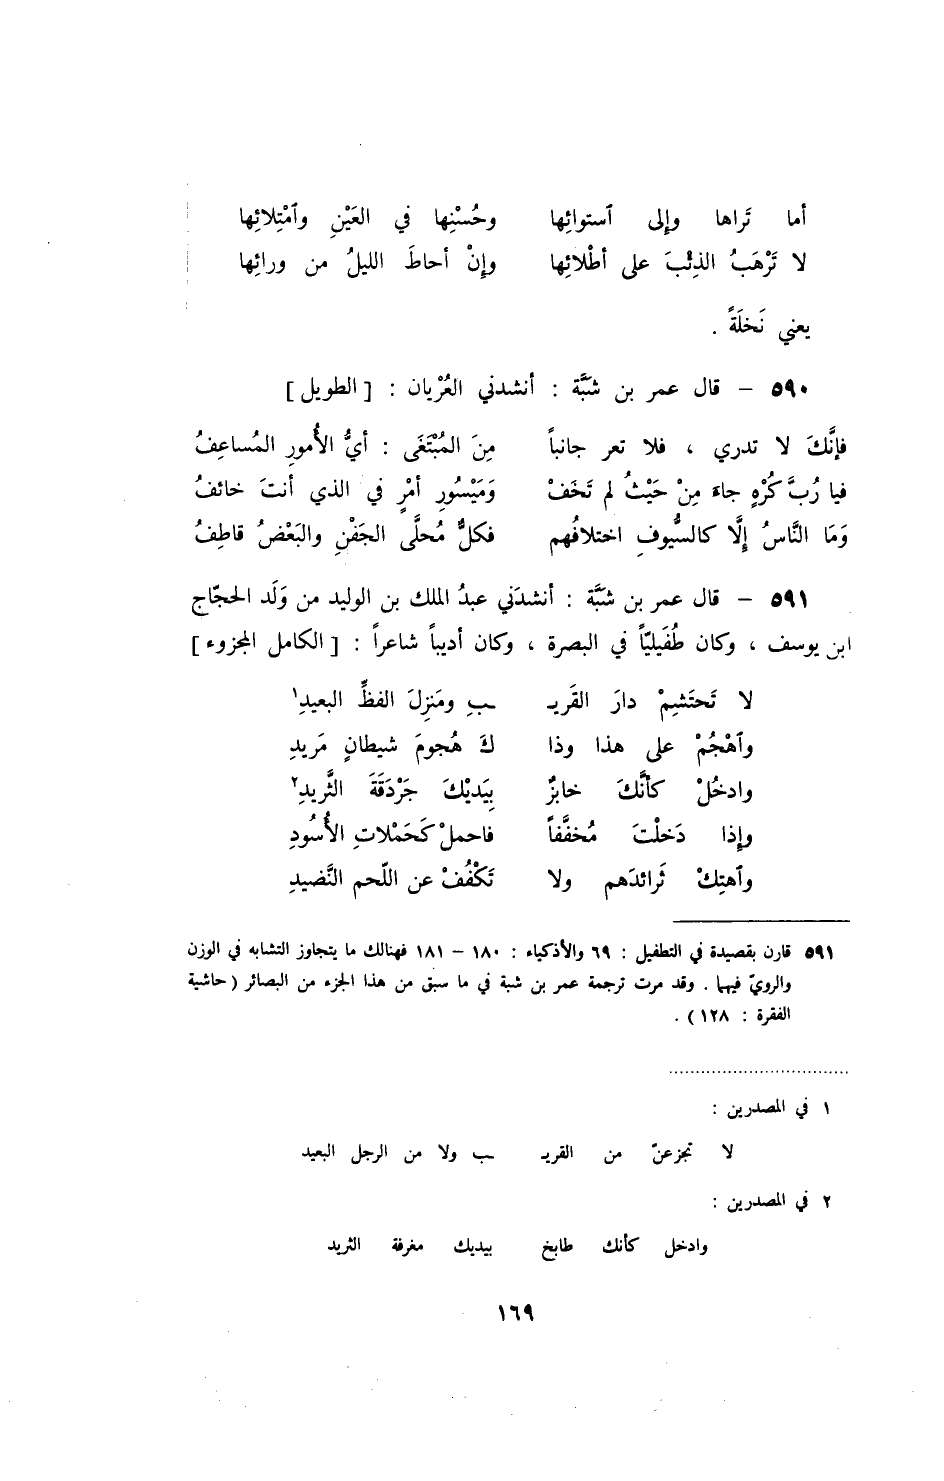 أما تَراها وإلى ٱستوائِها وحُسْنِها في العَيْنِ وٱمْتِلائِها
لا تَرْهَبُ الذِئْبَ على أطْلائِها وإنْ أحاطَ الليلُ من ورائِها
يعني نَخلَةً .
٥٩٠ – قال عمر بن شبَّة : أنشدني العُرْيان : [ الطويل ]
فإنَّكَ لا تدري ، فلا تعر جانباً مِنَ المُبْتَغَى : أيُّ الأُمورِ المُساعِفُ
فيا رُبَّ كُرْهٍ جاءَ مِنْ حَيْثُ لم تَخَفْ وَمَيْسُورِ أمْرٍ في الذي أنتَ خائفُ
وَمَا النَّاسُ إلَّا كالسُّيوفِ اختلافُهم فكلٌّ مُحلَّى الجَفْنِ والبَعْضُ قاطِفُ
٥٩١ – قال عمر بن شبَّة : أنشدَني عبدُ الملك بن الوليد من وَلَد الحجّاج
ابن يوسف ، وكان طُفَيليّاً في البصرة ، وكان أديباً شاعراً : [ الكامل المجزوء ]
لا تَحتَشِمْ دارَ القَريـ ـبِ ومَنزِلَ الفظِّ البعيدِ١
وٱهْجُمْ على هذا وذا كَ هُجومَ شيطانٍ مَريدِ
وادخُلْ كأنَّكَ خابزٌ بِيَديْكَ جَرْدَقَةَ الثَّريدِ٢
وإذا دَخلْتَ مُخفَّفاً فاحملْ كَحَمْلاتِ الأُسُودِ
وٱهتِكْ ثَرائدَهم ولا تَكْفُفْ عن اللّحم النَّضيدِ
٥٩١ قارن بقصيدة في التطفيل : ٦٩ والأذكياء : ١٨٠ – ١٨١ فهنالك ما يتجاوز التشابه في الوزن
والرويّ فيهما . وقد مرت ترجمة عمر بن شبة في ما سبق من هذا الجزء من البصائر ( حاشية
الفقرة : ١٢٨ ) .
١ في المصدرين :
لا تجزعنّ من القريـ ـب ولا من الرجل البعيد
٢ في المصدرين :
وادخل كأنك طابخ بيديك مغرفة الثريد
١٦٩